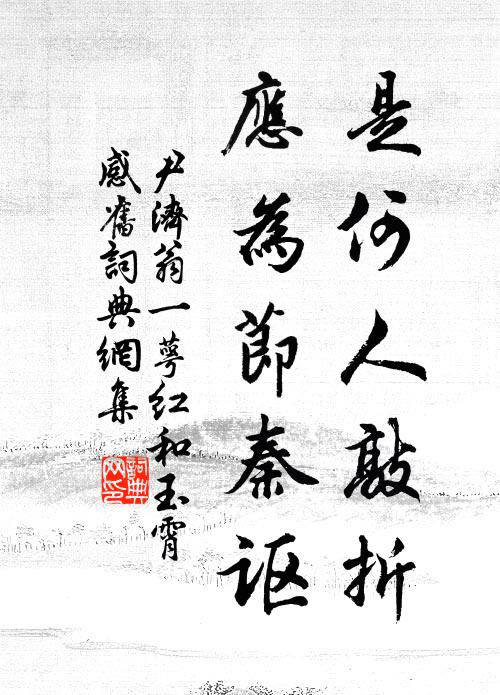 是何人敲折
應為節秦讴
尹濟翁一萼红和玉霄
感舊詞典網集
詞典
网印